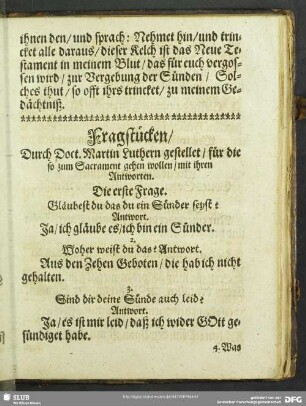 ihnen den/ und sprach: Nehmet hin/ und trin-
cket alle daraus/ dieser Kelch ist das Neue Te-
stament in meinem Blut/ das für euch vergos-
sen wird/ zur Vergebung der Sünden/ Sol-
ches thut/ so offt ihrs trincket/ zu meinem Ge-
dächtniß.
Fragstücken/
Durch Doct. Martin Luthern gestellet/ für die
so zum Sacrament gehen wollen/ mit ihren
Antworten.
Die erste Frage.
Gläubest du das du ein Sünder seyst?
Antwort.
Ja/ ich gläube es/ ich bin ein Sünder.
2.
Woher weist du das? Antwort.
Aus den Zehen Geboten/ die hab ich nicht
gehalten.
3.
Sind dir deine Sünde auch leid?
Antwort.
Ja/ es ist mir leid/ daß ich wider GOtt ge-
sündiget habe.
4. Was
SLUB
Wir führen Wissen.